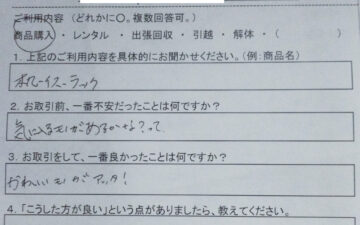 ご利用内容(どれかに○。複数回答可。)
商品購入 ・ レンタル ・ 出張回収 ・ 引越 ・ 解体 ・ (
1. 上記のご利用内容を具体的にお聞かせください。(例:商品名)
本ダーイスーラック
2. お取引前、一番不安だったことは何ですか?
気に入るモノがあるかな?って
3. お取引をして、一番良かったことは何ですか?
かわいいモノがアッタ!
4. 「こうした方が良い」という点がありましたら、教えてください。